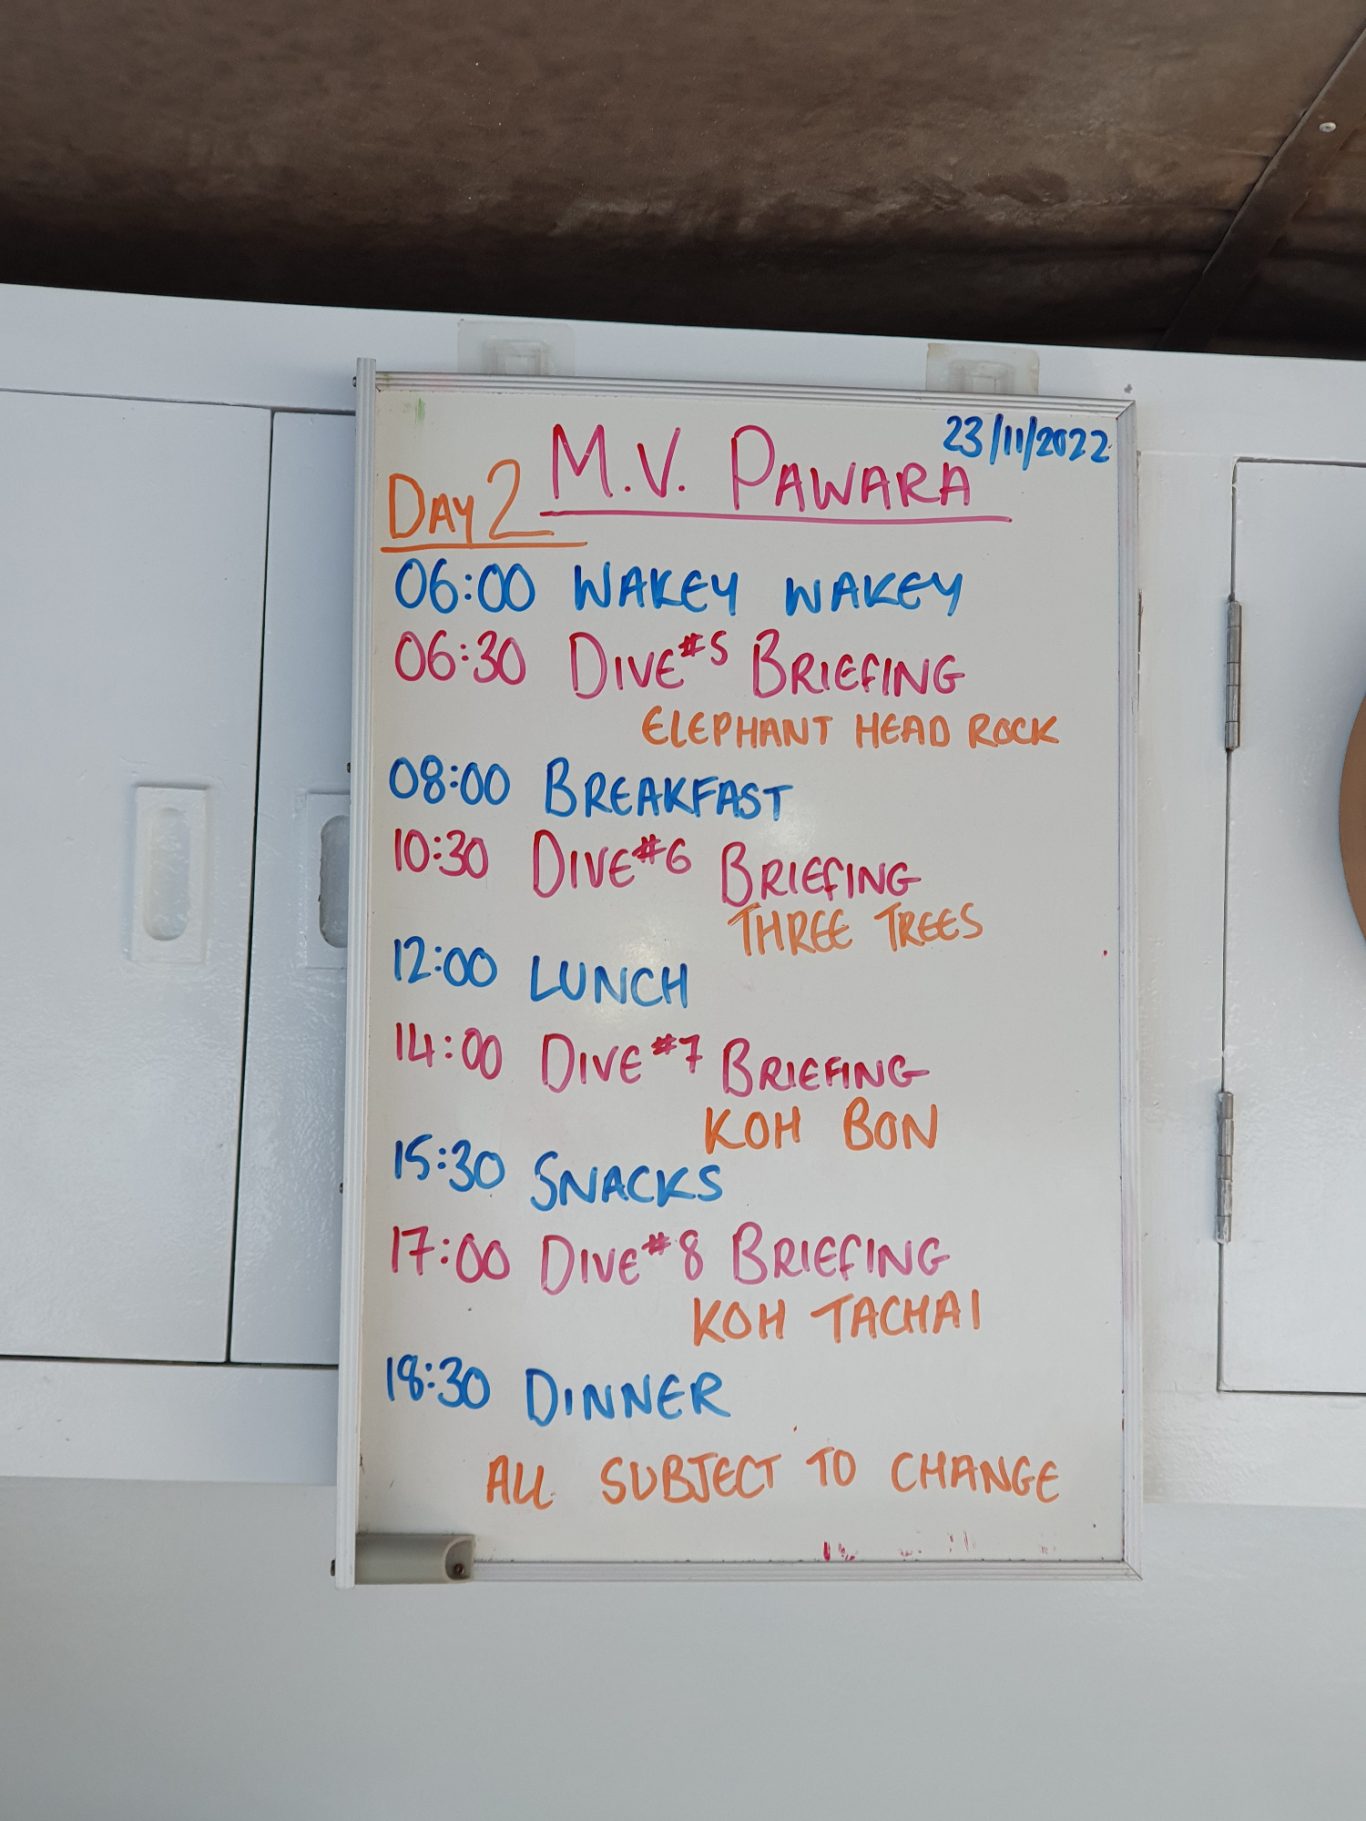 23/11/2022
M.V. PAWARA
DAY 2
06:00 WAKEY WAKEY
06:30 DIVE #5 BRIEFING
ELEPHANT HEAD ROCK
08:00 BREAKFAST
10:30 DIVE #6 BRIEFING
THREE TREES
12:00 LUNCH
14:00 DIVE #7 BRIEFING
KOH BON
15:30 SNACKS
17:00 DIVE #8 BRIEFING
KOH TACHAI
18:30 DINNER
ALL SUBJECT TO CHANGE